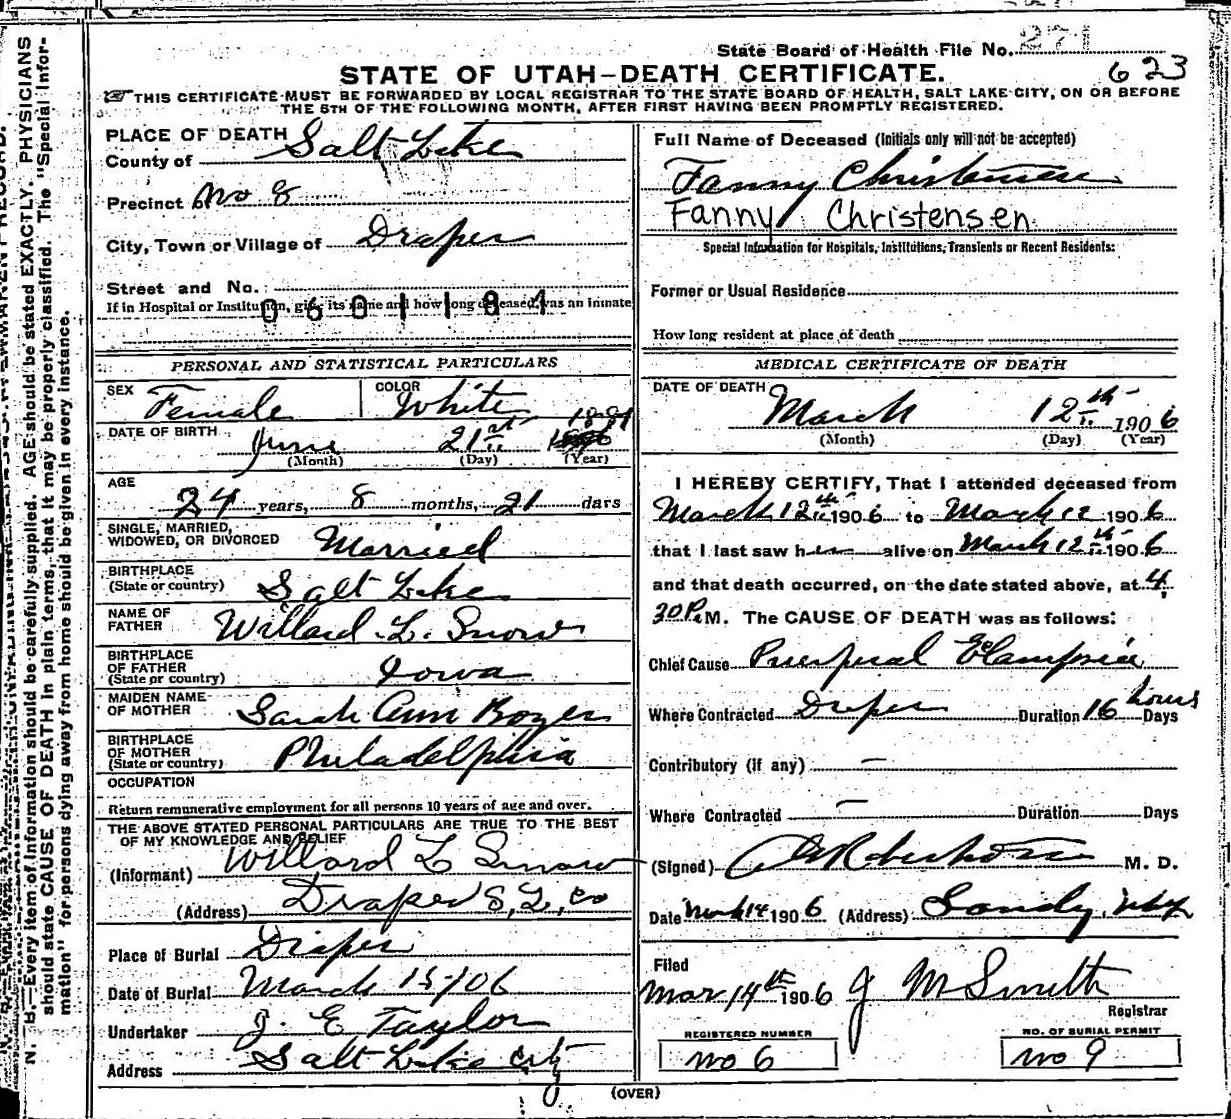 State Board of Health File No. 271
623
STATE OF UTAH—DEATH CERTIFICATE.
THIS CERTIFICATE MUST BE FORWARDED BY LOCAL REGISTRAR TO THE STATE BOARD OF HEALTH, SALT LAKE CITY, ON OR BEFORE
THE 5TH OF THE FOLLOWING MONTH, AFTER FIRST HAVING BEEN PROMPTLY REGISTERED.
PLACE OF DEATH
County of Salt Lake
Precinct No 8
City, Town or Village of Draper
Street and No.
If in Hospital or Institution, give its name and how long deceased was an inmate
0601184
PERSONAL AND STATISTICAL PARTICULARS
SEX Female COLOR White
DATE OF BIRTH June 21st 1881
(Month) (Day) (Year)
AGE
24 years, 8 months, 21 days
SINGLE, MARRIED,
WIDOWED, OR DIVORCED Married
BIRTHPLACE
(State or country) Salt Lake
NAME OF
FATHER Willard L. Snow
BIRTHPLACE
OF FATHER
(State or country) Iowa
MAIDEN NAME
OF MOTHER Sarah Ann Boyer
BIRTHPLACE
OF MOTHER
(State or country) Philadelphia
OCCUPATION
Return remunerative employment for all persons 10 years of age and over.
THE ABOVE STATED PERSONAL PARTICULARS ARE TRUE TO THE BEST
OF MY KNOWLEDGE AND BELIEF
(Informant) Willard L Snow
(Address) Draper S, L, Co
Place of Burial Draper
Date of Burial March 15/06
Undertaker J. E Taylor
Address Salt Lake City
Full Name of Deceased (Initials only will not be accepted)
Fanny Christensen
Fanny Christensen
Special Information for Hospitals, Institutions, Transients or Recent Residents:
Former or Usual Residence
How long resident at place of death
MEDICAL CERTIFICATE OF DEATH
DATE OF DEATH
March 12th 1906
(Month) (Day) (Year)
I HEREBY CERTIFY, That I attended deceased from
March 12th 1906 to March 12 1906
that I last saw her alive on March 12th 1906
and that death occurred, on the date stated above, at 4.
30 P. M. The CAUSE OF DEATH was as follows:
Chief Cause Puerpual Eclampsia
Where Contracted Draper Duration 16 hours Days
Contributory (if any) —
Where Contracted — Duration Days
(Signed) M. D.
Date March 14 1906 (Address) Sandy, Utah
Filed
Mar 14th 1906 J M Smith
Registrar
REGISTERED NUMBER
no 6
NO. OF BURIAL PERMIT
no 9
(OVER)
N. B.—Every item of information should be carefully supplied. AGE should be stated EXACTLY. PHYSICIANS
should state CAUSE OF DEATH in plain terms, that it may be properly classified. The "Special Infor-
mation" for persons dying away from home should be given in every instance.